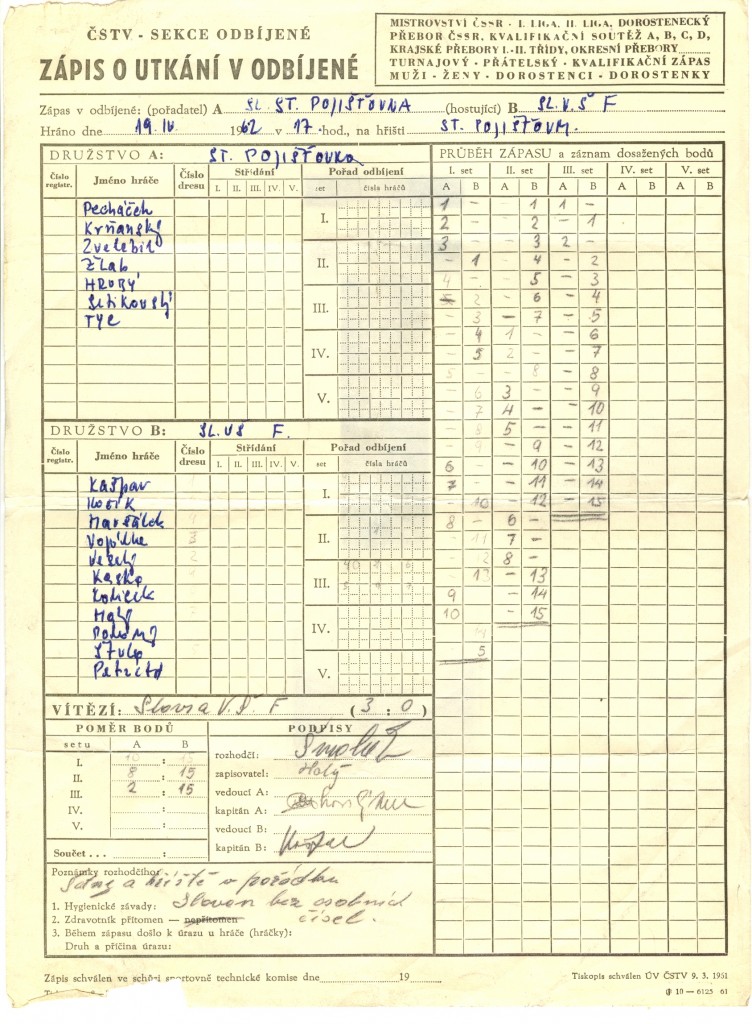 ČSTV - SEKCE ODBÍJENÉ
ZÁPIS O UTKÁNÍ V ODBÍJENÉ
MISTROVSTVÍ ČSSR - I. LIGA, II. LIGA, DOROSTENECKÝ
PŘEBOR ČSSR, KVALIFIKAČNÍ SOUTĚŽ A, B, C, D,
KRAJSKÉ PŘEBORY I.-II. TŘÍDY, OKRESNÍ PŘEBORY
TURNAJOVÝ - PŘÁTELSKÝ - KVALIFIKAČNÍ ZÁPAS
MUŽI - ŽENY - DOROSTENCI - DOROSTENKY
Zápas v odbíjené: (pořadatel) A SL. ST. POJIŠŤOVNA (hostující) B SL.V.Š F
Hráno dne 19. IV. 1962 v 17 hod., na hřišti ST. POJIŠŤOVN.
DRUŽSTVO A: ST. POJIŠŤOVNA
Číslo registr. Jméno hráče Číslo dresu Střídání Pořad odbíjení
I. II. III. IV. V. set čísla hráčů
Pecháček
Krňanský
Zvelebil
Žlab
HRUBÝ
Setikovský
TYC
I.
II.
III.
IV.
V.
DRUŽSTVO B: SL. VŠ F.
Číslo registr. Jméno hráče Číslo dresu Střídání Pořad odbíjení
I. II. III. IV. V. set čísla hráčů
Kašpar
Maršálek
Veselý
Kaska
Malý
I.
II.
III.
IV.
V.
PRŮBĚH ZÁPASU a záznam dosažených bodů
I. set II. set III. set IV. set V. set
A B A B A B A B A B
1 - 1 1 -
2 - 2 - 1
3 - 3 2 -
- 1 - 4 - 2
4 - - 5 - 3
- 2 - 6 - 4
- 3 - 7 - 5
- 4 1 - - 6
- 5 2 - - 7
5 - - 8 - 8
- 6 3 - 9
- 7 4 - - 10
- 8 5 - - 11
- 9 - 9 - 12
6 - 10 - 13
7 - - 11 - 14
- 10 - 12 - 15
8 - 6 -
- 11 7 -
8 -
- 13 - 13
9 - 14
10 - 15
VÍTĚZÍ: Slovia V.Š. F (3:0)
POMĚR BODŮ
setu A B
I. 10 : 15
II. 8 : 15
III. 2 : 15
IV. :
V. :
Součet . . . :
PODPISY
rozhodčí:
zapisovatel: Holý
vedoucí A:
kapitán A:
vedoucí B:
kapitán B:
Poznámky rozhodčího:
a hřiště v pořádku
1. Hygienické závady: Slovan bez osobních
2. Zdravotník přítomen — nepřítomen čísel.
3. Během zápasu došlo k úrazu u hráče (hráčky):
Druh a příčina úrazu:
Zápis schválen ve schůzi sportovně technické komise dne 19
Tiskopis schválen ÚV ČSTV 9. 3. 1951
10 — 6125 61